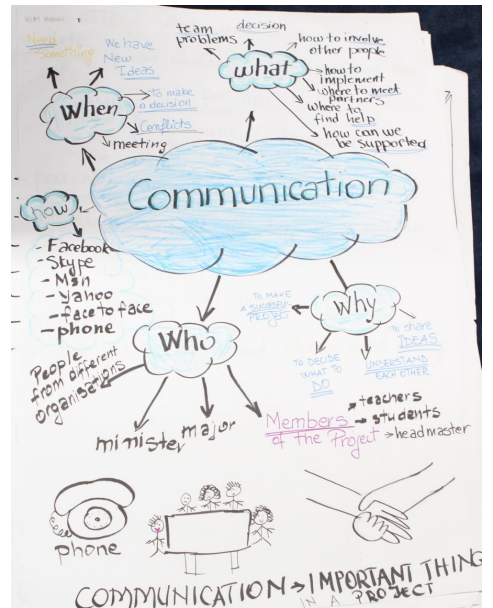 Need
something
We have
New
Ideas
to make
a decision
Conflicts
meeting
When
team
problems
decision
how to involve
other people
how to
implement
where to meet
partners
where to
find help
how can we
be supported
what
Communication
how
- Facebook
- Skype
- Msn
- yahoo
- face to face
- phone
Who
People
from different
organisations
minister
major
Members
of the Project
teachers
students
headmaster
Why
TO MAKE
A SUCCESFUL
PROJECT
TO DECIDE
WHAT TO
DO
UNDERSTAND
EACH OTHER
to share
IDEAS
phone
COMMUNICATION → IMPORTANT THING
IN A PROJECT